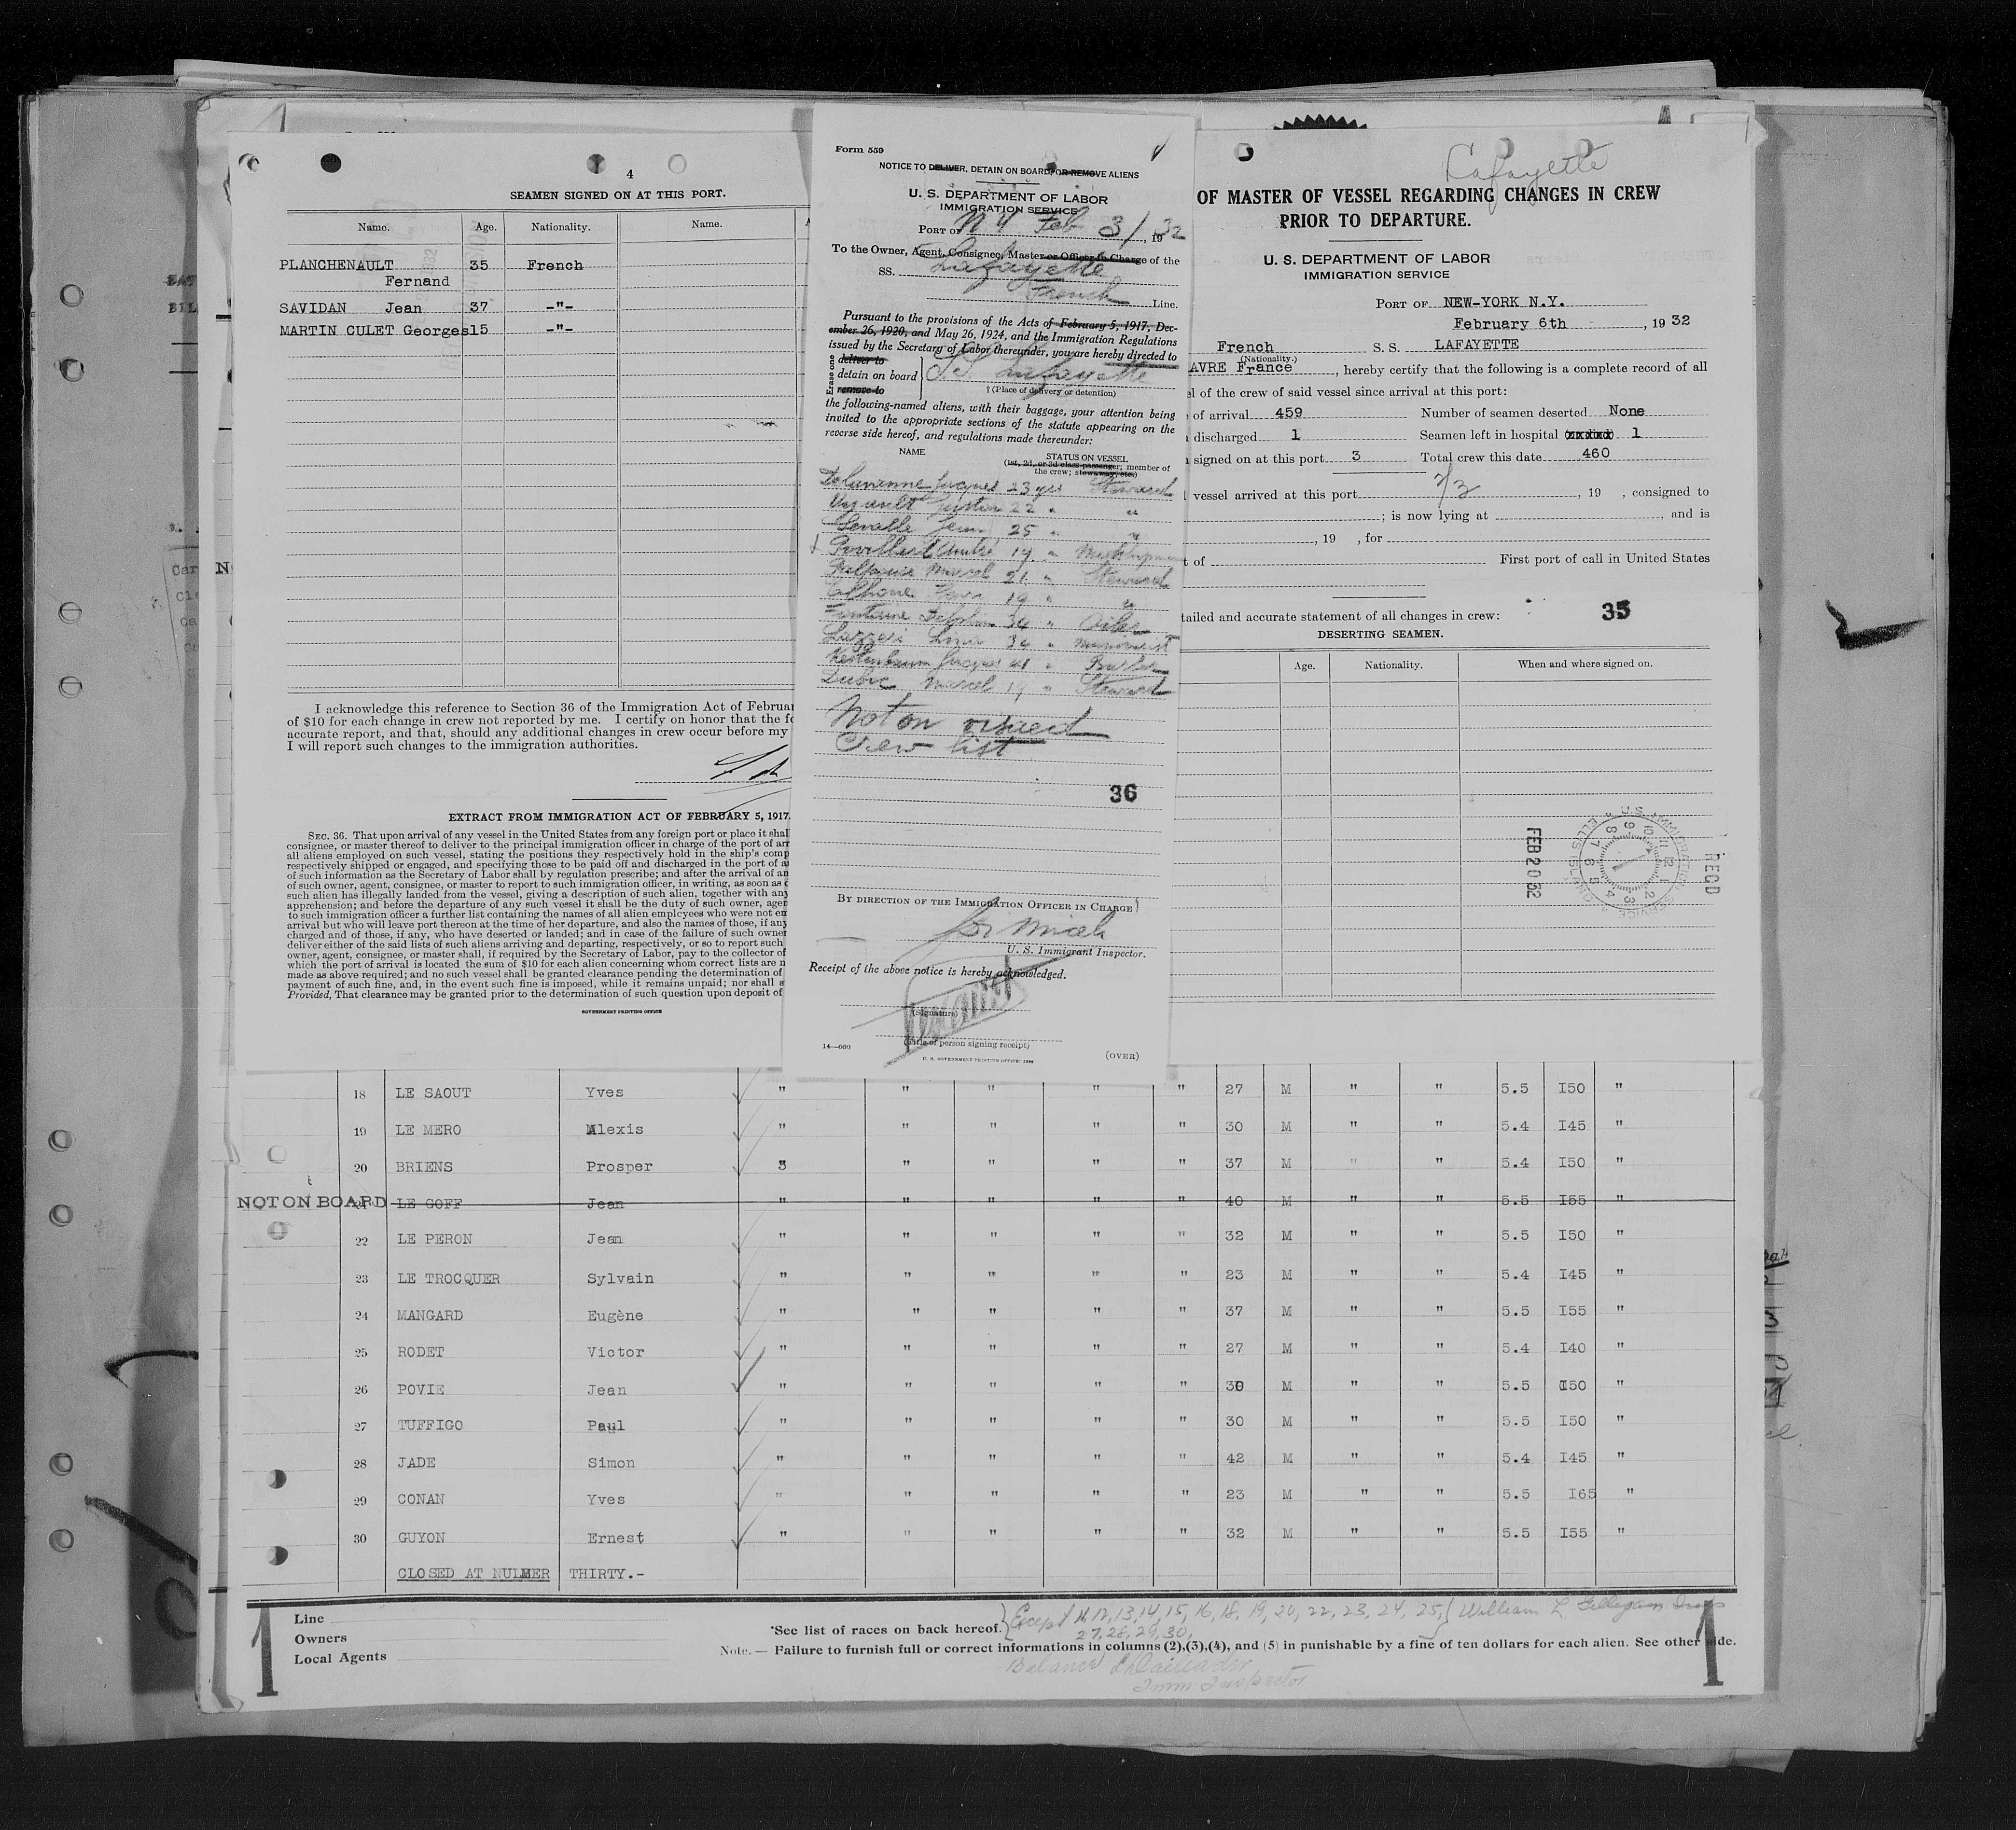 4
SEAMEN SIGNED ON AT THIS PORT.
Name. Age. Nationality. Name.
PLANCHENAULT 35 French
Fernand
SAVIDAN Jean 37 -"-
MARTIN CULET Georges 15 -"-
I acknowledge this reference to Section 36 of the Immigration Act of
of $10 for each change in crew not reported by me. I certify on honor that the
accurate report, and that, should any additional changes in crew occur before my
I will report such changes to the immigration authorities.
EXTRACT FROM IMMIGRATION ACT OF FEBRUARY 5, 1917.
SEC. 36. That upon arrival of any vessel in the United States from any foreign port or place it shall
consignee, or master thereof to deliver to the principal immigration officer in charge of the port of
all aliens employed on such vessel, stating the positions they respectively hold in the ship's
respectively shipped or engaged, and specifying those to be paid off and discharged in the port of
of such information as the Secretary of Labor shall by regulation prescribe; and after the arrival of
of such owner, agent, consignee, or master to report to such immigration officer, in writing, as soon as
such alien has illegally landed from the vessel, giving a description of such alien, together with any
apprehension; and before the departure of any such vessel it shall be the duty of such owner,
to such immigration officer a further list containing the names of all alien employees who were not
arrival but who will leave port thereon at the time of her departure, and also the names of those, if any
charged and of those, if any, who have deserted or landed; and in case of the failure of such owner
deliver either of the said lists of such aliens arriving and departing, respectively, or so to report such
owner, agent, consignee, or master shall, if required by the Secretary of Labor, pay to the collector of
which the port of arrival is located the sum of $10 for each alien concerning whom correct lists are
made as above required; and no such vessel shall be granted clearance pending the determination of
payment of such fine, and, in the event such fine is imposed, while it remains unpaid; nor shall
Provided, That clearance may be granted prior to the determination of such question upon deposit of
GOVERNMENT PRINTING OFFICE
Form 559
NOTICE TO DELIVER, DETAIN ON BOARD, OR REMOVE ALIENS
U. S. DEPARTMENT OF LABOR
IMMIGRATION SERVICE
PORT OF N Y Feb 3/, 1932
To the Owner, Agent, Consignee, Master or Officer in Charge of the
SS. Lafayette
French Line.
Pursuant to the provisions of the Acts of February 5, 1917, Dec-
ember 26, 1920, and May 26, 1924, and the Immigration Regulations
issued by the Secretary of Labor thereunder, you are hereby directed to
Erase one
deliver to
detain on board S.S. Lafayette
remove to
† (Place of delivery or detention)
the following-named aliens, with their baggage, your attention being
invited to the appropriate sections of the statute appearing on the
reverse side hereof, and regulations made thereunder:
NAME STATUS ON VESSEL
(1st, 2d, or 3d class passenger; member of
the crew; stowaway, etc.)
Jacques 23 yrs Steward
22 " "
Jean 25 " "
André 19 "
Marcel 21 " Steward
19 " "
Fontaine 34 " Oiler
Lazzeri 34 "
Jacques 41 " Barber
Marcel 19 " Steward
Not on visaed
Crew list
36
BY DIRECTION OF THE IMMIGRATION OFFICER IN CHARGE
U. S. Immigrant Inspector.
Receipt of the above notice is hereby acknowledged.
(Signature)
(Title of person signing receipt)
14—660
U. S. GOVERNMENT PRINTING OFFICE
(OVER)
Lafayette
OF MASTER OF VESSEL REGARDING CHANGES IN CREW
PRIOR TO DEPARTURE.
U. S. DEPARTMENT OF LABOR
IMMIGRATION SERVICE
PORT OF NEW-YORK N.Y.
February 6th, 1932
French S. S. LAFAYETTE
(Nationality.)
AVRE France, hereby certify that the following is a complete record of all
of the crew of said vessel since arrival at this port:
of arrival 459 Number of seamen deserted None
discharged 1 Seamen left in hospital 1
signed on at this port 3 Total crew this date 460
vessel arrived at this port 2/3, 19 , consigned to
; is now lying at , and is
, 19 , for
of First port of call in United States
35
tailed and accurate statement of all changes in crew:
DESERTING SEAMEN.
Age. Nationality. When and where signed on.
FEB 20 32
RECD
18 LE SAOUT Yves " " " " " 27 M " " 5.5 I50 "
19 LE MERO Alexis " " " " " 30 M " " 5.4 I45 "
20 BRIENS Prosper 3 " " " " 37 M " " 5.4 I50 "
NOT ON BOARD 21 LE GOFF Jean " " " " " 40 M " " 5.5 I55 "
22 LE PERON Jean " " " " " 32 M " " 5.5 I50 "
23 LE TROCQUER Sylvain " " " " " 23 M " " 5.4 I45 "
24 MANGARD Eugène " " " " " 37 M " " 5.5 I55 "
25 RODET Victor " " " " " 27 M " " 5.4 I40 "
26 POVIE Jean " " " " " 30 M " " 5.5 I50 "
27 TUFFIGO Paul " " " " " 30 M " " 5.5 I50 "
28 JADE Simon " " " " " 42 M " " 5.4 I45 "
29 CONAN Yves " " " " " 23 M " " 5.5 I65 "
30 GUYON Ernest " " " " " 32 M " " 5.5 I55 "
CLOSED AT NUMBER THIRTY.-
1
Line
Owners
Local Agents
*See list of races on back hereof.
Except 11, 12, 13, 14, 15, 16, 18, 19, 20, 22, 23, 24, 25,
27, 28, 29, 30,
William L.
Note.— Failure to furnish full or correct informations in columns (2),(3),(4), and (5) in punishable by a fine of ten dollars for each alien. See other side.
Balance
Imm. Inspector
1